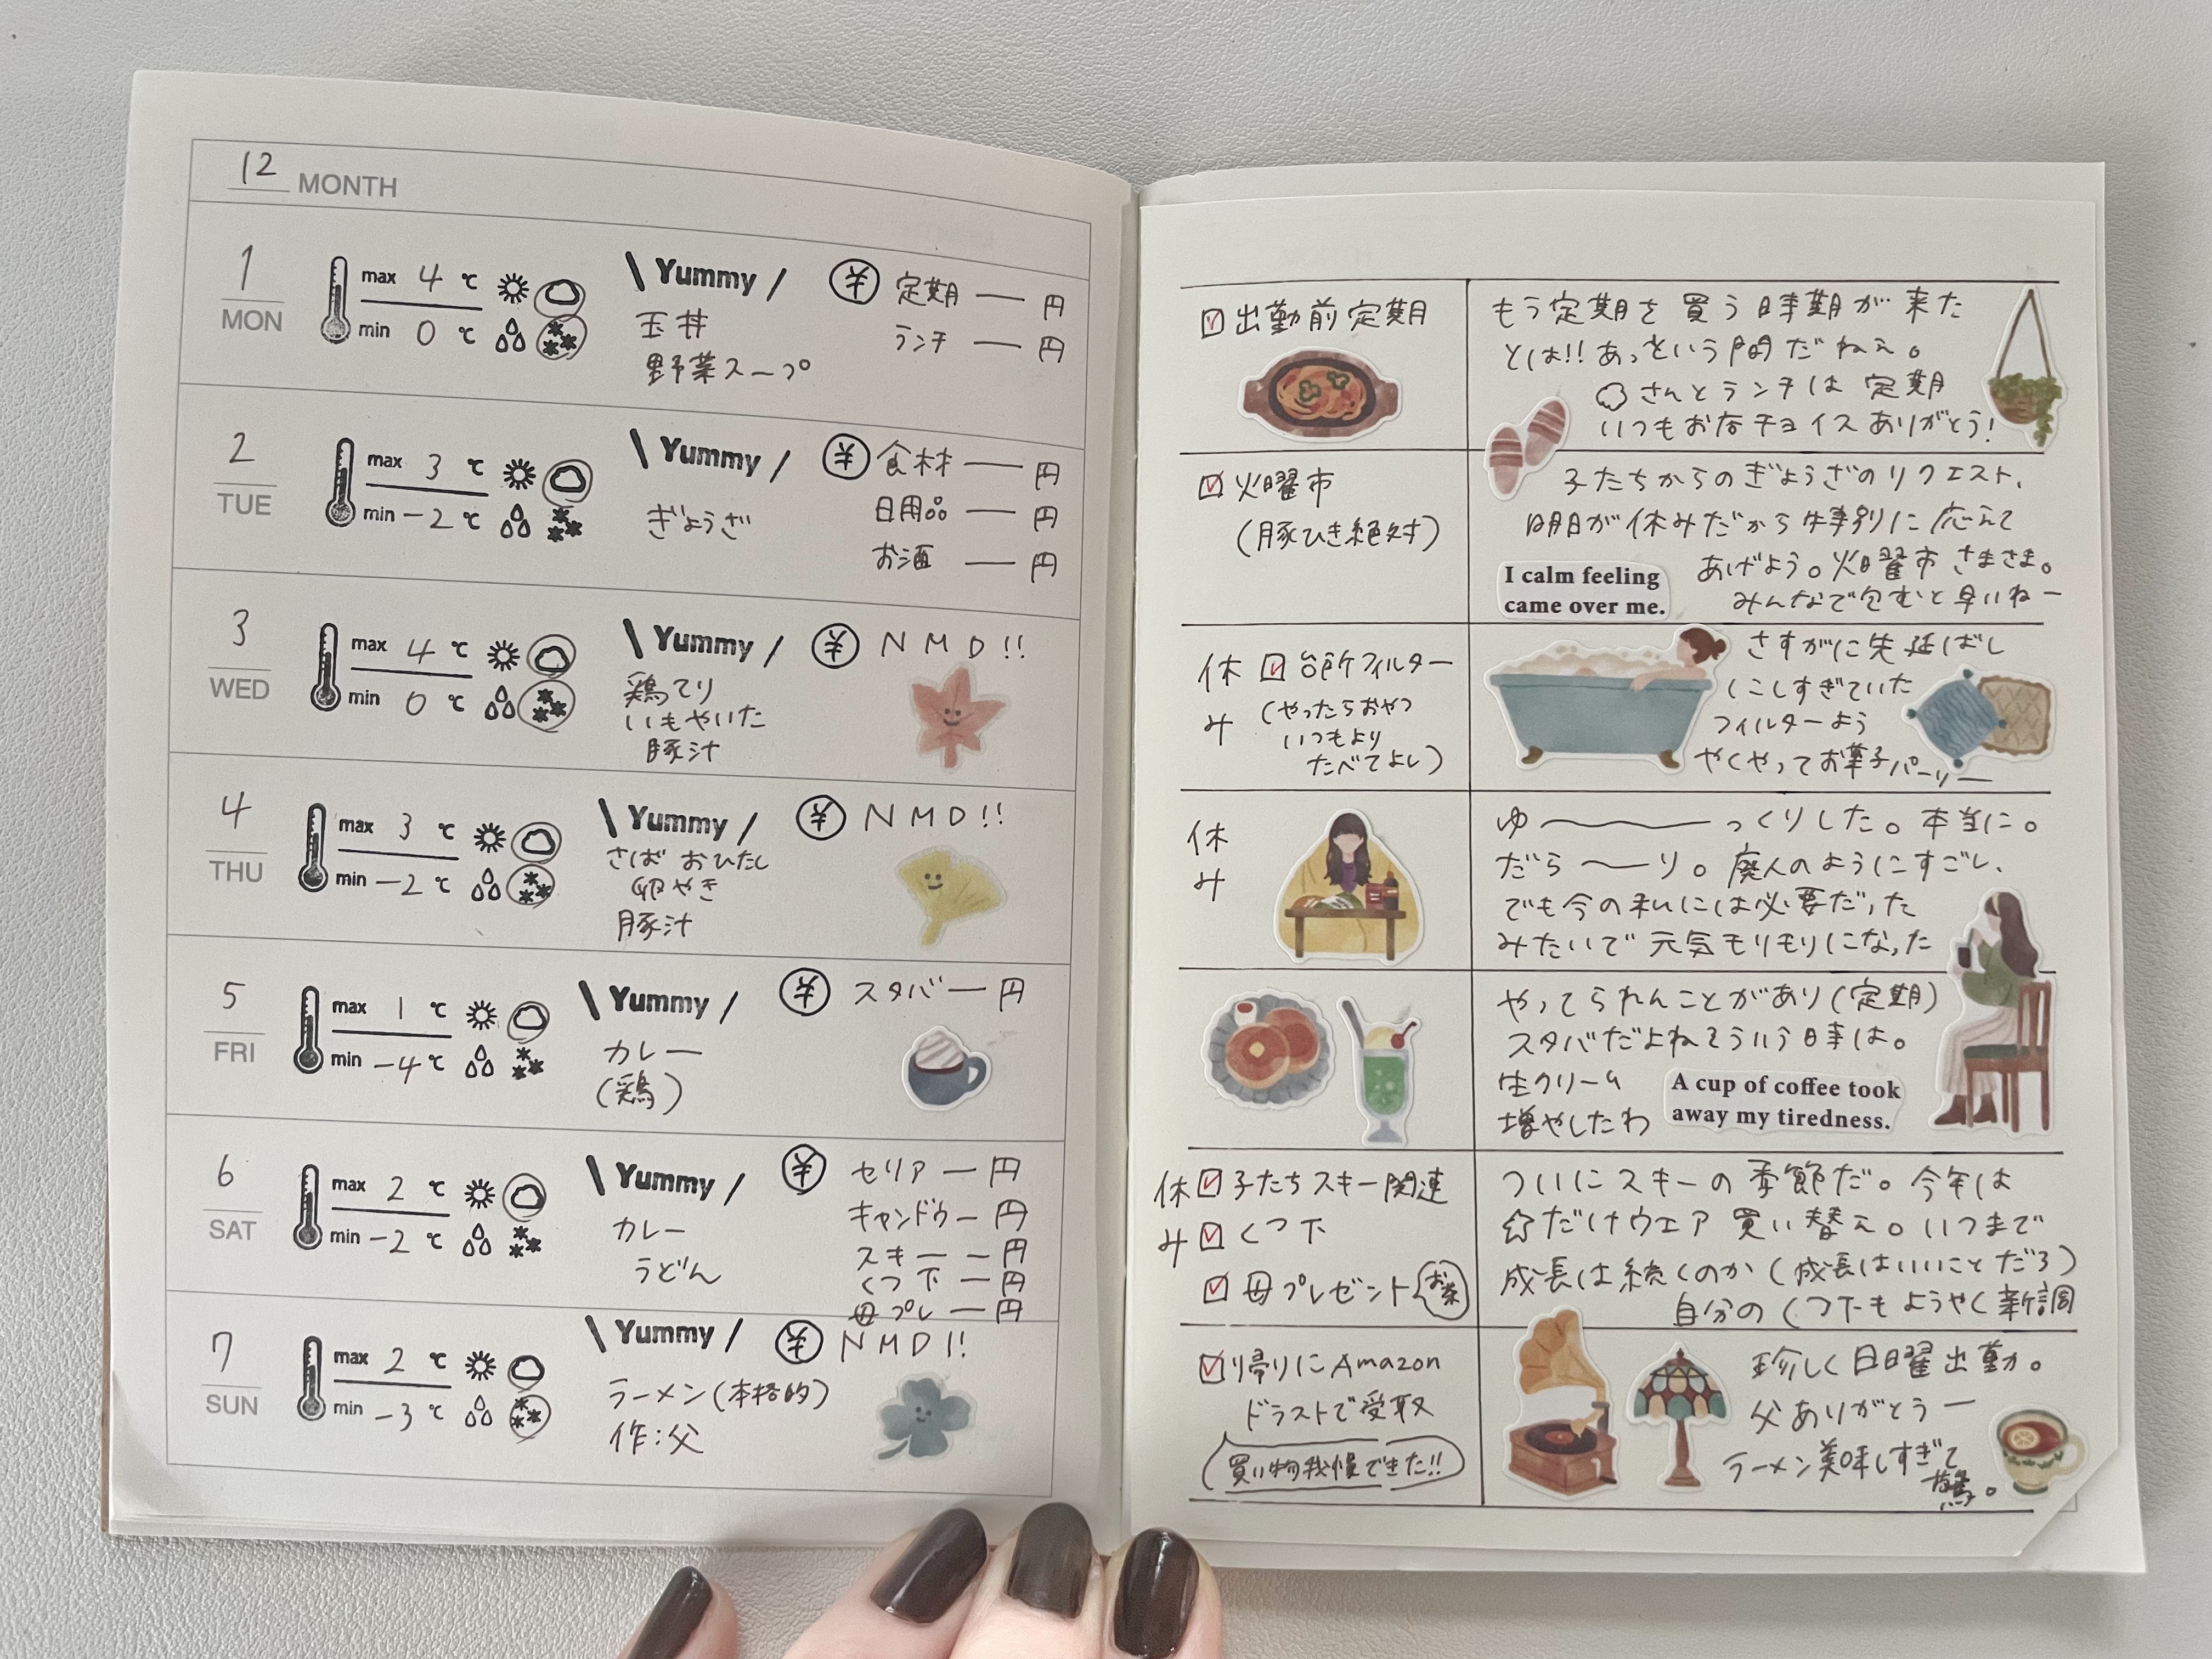 12 MONTH
1
MON
max 4 ℃
min 0 ℃
\ Yummy /
玉丼
野菜スープ
¥ 定期 — 円
ランチ — 円
2
TUE
max 3 ℃
min -2 ℃
\ Yummy /
ぎょうざ
¥ 食材 — 円
日用品 — 円
お酒 — 円
3
WED
max 4 ℃
min 0 ℃
\ Yummy /
鶏てり
いもやいた
豚汁
¥ NMD!!
4
THU
max 3 ℃
min -2 ℃
\ Yummy /
さば おひたし
卵やき
豚汁
¥ NMD!!
5
FRI
max 1 ℃
min -4 ℃
\ Yummy /
カレー
(鶏)
¥ スタバ — 円
6
SAT
max 2 ℃
min -2 ℃
\ Yummy /
カレー
うどん
¥ セリア — 円
キャンドゥ — 円
スキー — 円
くつ下 — 円
母プレ — 円
7
SUN
max 2 ℃
min -3 ℃
\ Yummy /
ラーメン(本格的)
作:父
¥ NMD!!
出勤前定期
もう定期を買う時期が来た
とは!! あっという間だねぇ。
さんとランチは定期
いつもお店チョイスありがとう!
火曜市
(豚ひき絶対)
子たちからのぎょうざのリクエスト、
明日が休みだから特別に応えて
あげよう。火曜市さまさま。
みんなで包むと早いねー
I calm feeling
came over me.
休み
台所フィルター
(やったらおやつ
いつもより
たべてよし)
さすがに先延ばし
にしすぎていた
フィルターよう
やくやってお菓子パーリー
休み
ゆ〜〜〜っくりした。本当に。
だら〜〜り。廃人のようにすごし、
でも今の私には必要だった
みたいで元気モリモリになった
やってられんことがあり(定期)
スタバだよねそういう時は。
生クリーム
増やしたわ
A cup of coffee took
away my tiredness.
休み
子たちスキー関連
くつ下
母プレゼント お茶
ついにスキーの季節だ。今年は
☆だけウエア買い替え。いつまで
成長は続くのか(成長はいいことだろ)
自分のくつ下もようやく新調
帰りにAmazon
ドラストで受取
買い物我慢できた!!
珍しく日曜出勤。
父ありがとうー
ラーメン美味しすぎて
驚。